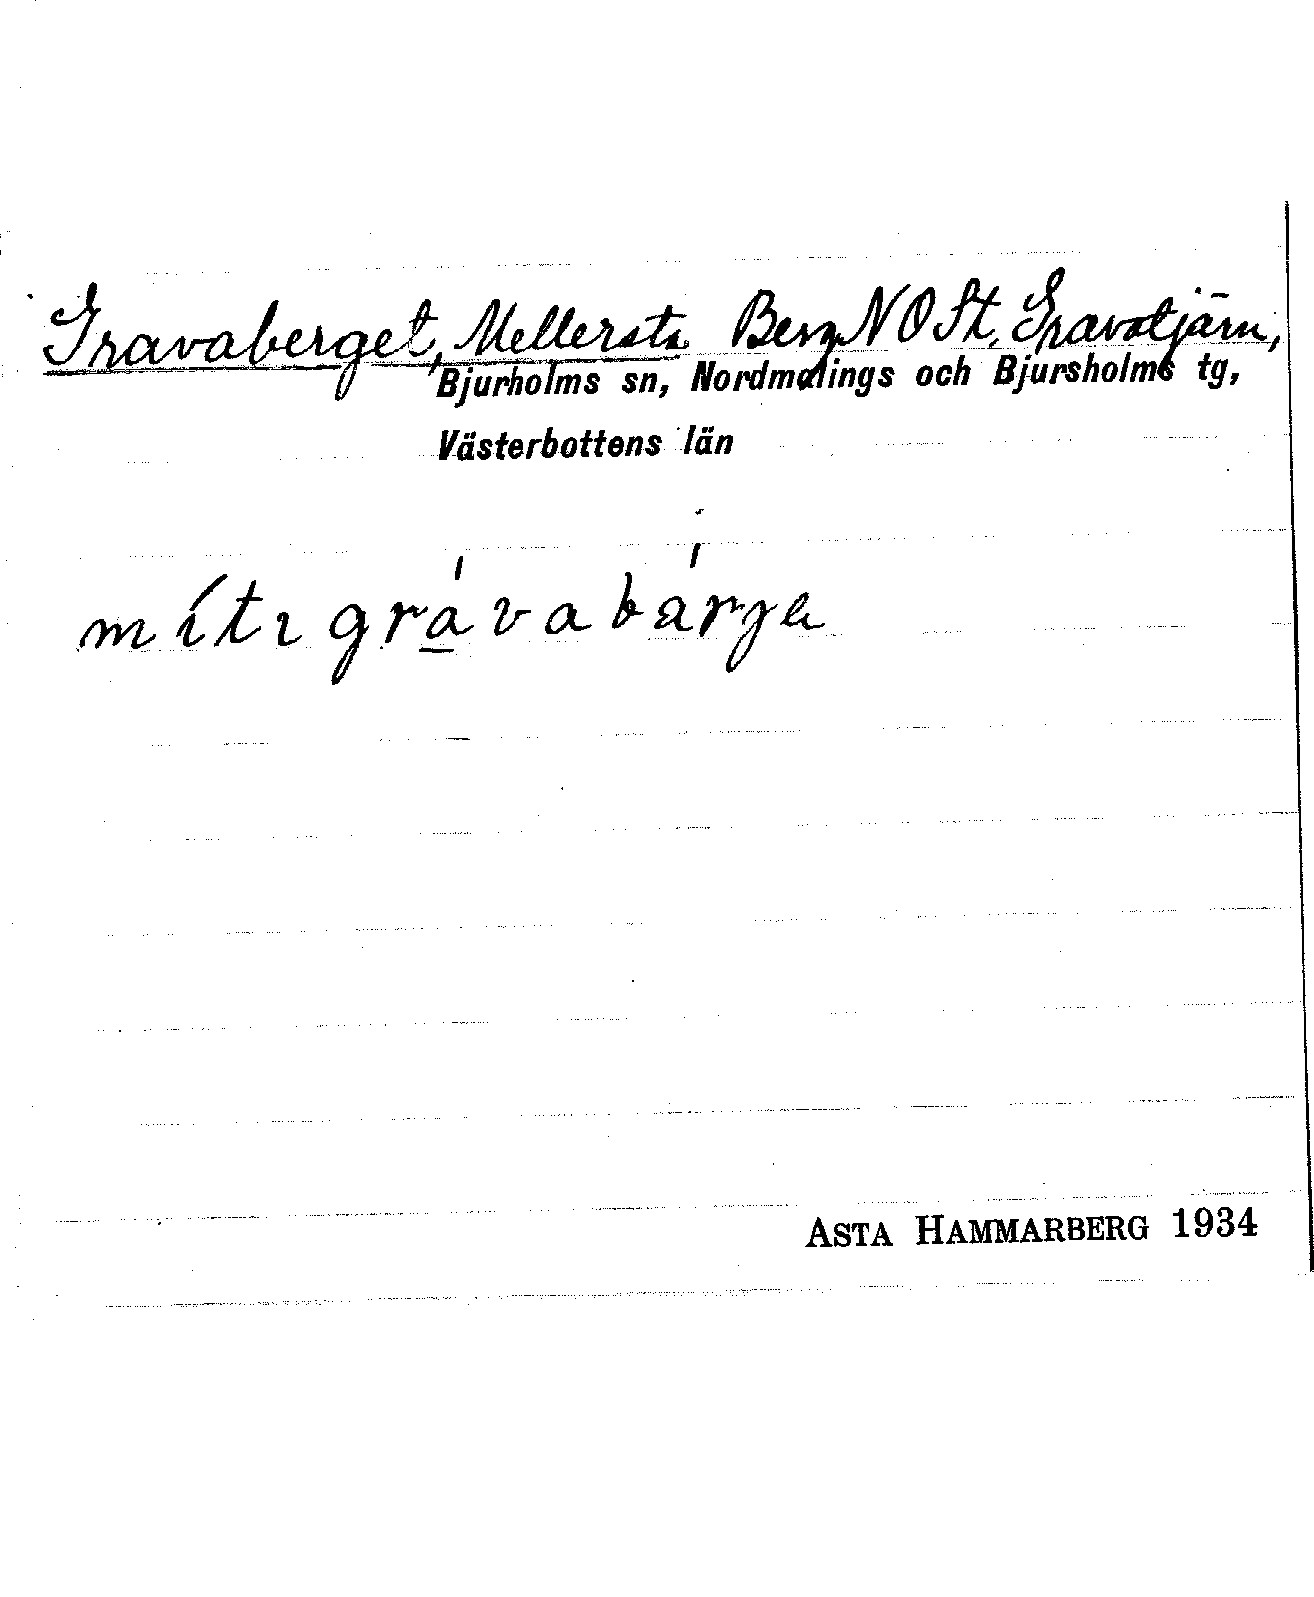 Gravaberget, Mellersta Berg NO St. Gravatjärn,
Bjurholms sn, Nordmalings och Bjursholms tg,
Västerbottens län
mítı grávabárgɘ
ASTA HAMMARBERG 1934